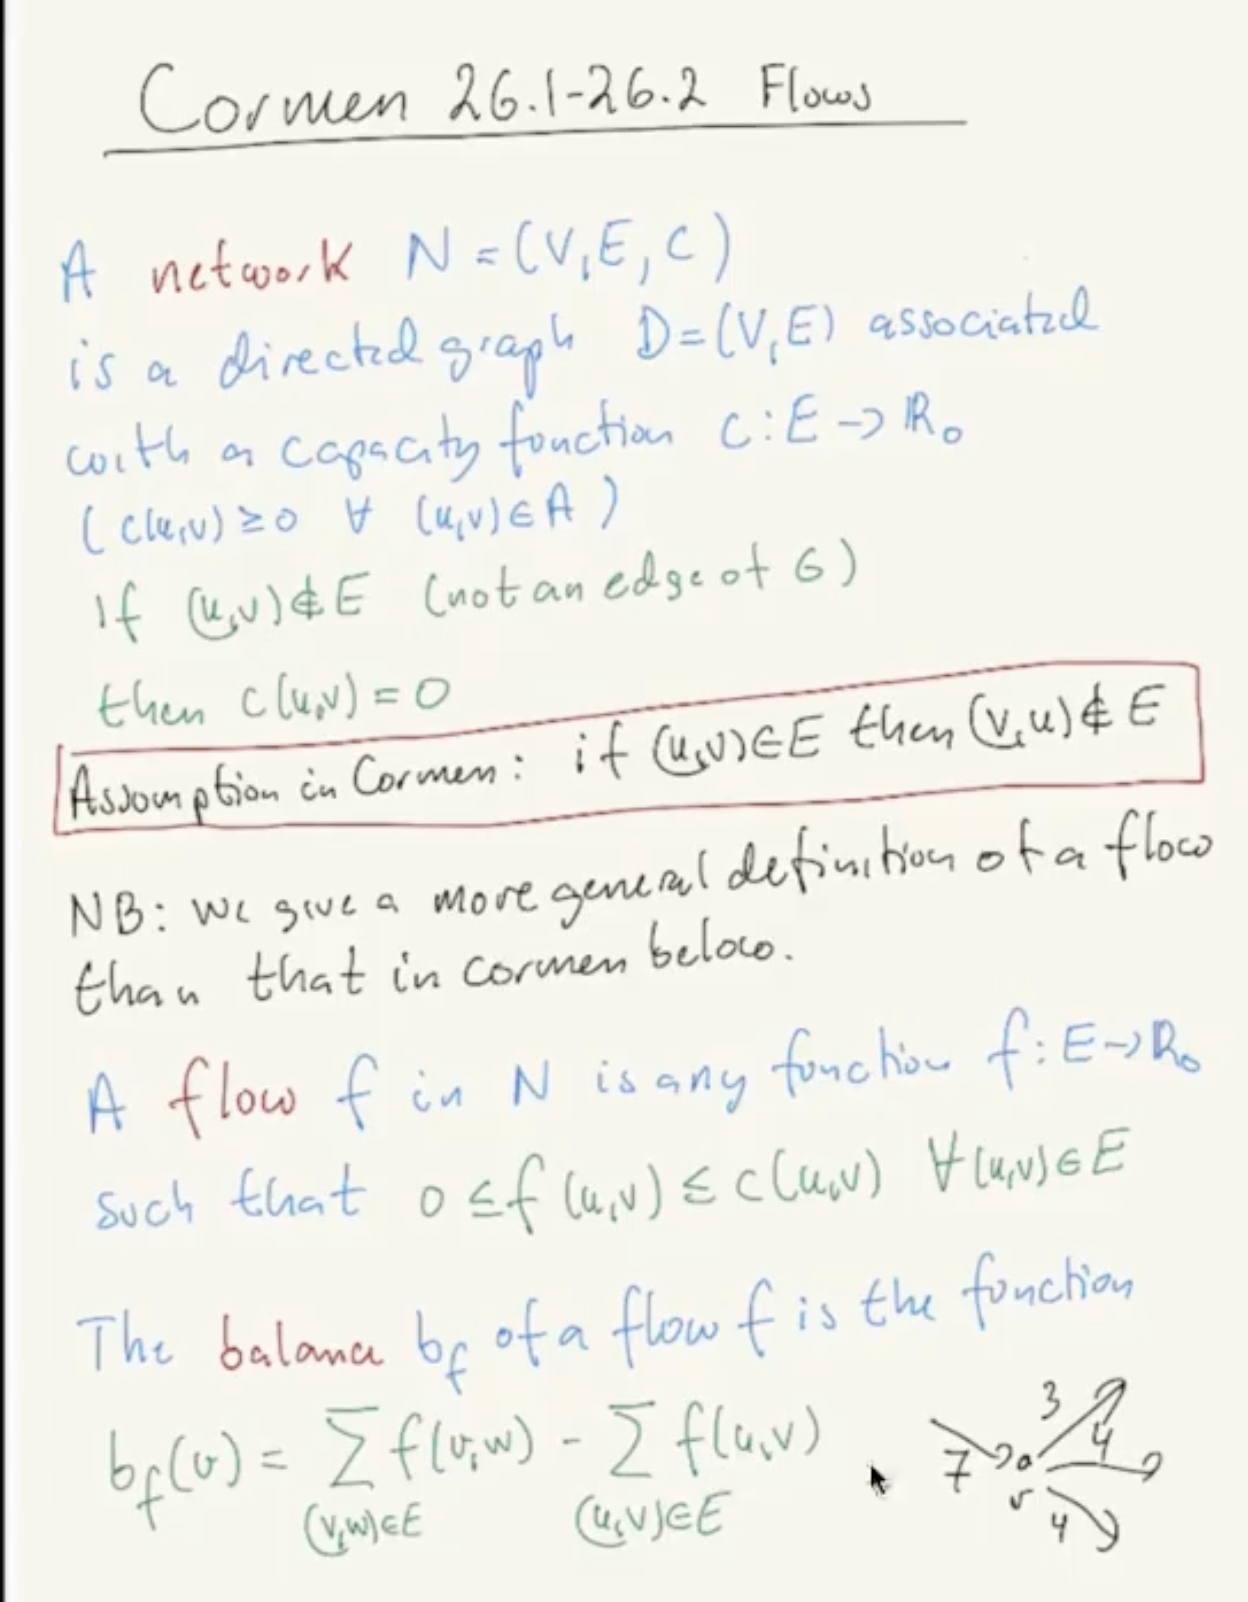 Cormen 26.1-26.2 Flows
A network N = (V, E, C)
is a directed graph D=(V,E) associated
with a capacity function C:E→ℝ₀
(c(u,v)≥0 ∀ (u,v)∈A)
If (u,v)∉E (not an edge of G)
then c(u,v) = 0
Assumption in Cormen: if (u,v)∈E then (v,u)∉E
NB: we give a more general definition of a flow
than that in Cormen below.
A flow f in N is any function f:E→ℝ₀
such that 0 ≤ f(u,v) ≤ c(u,v) ∀(u,v)∈E
The balance b_f of a flow f is the function
b_f(v) = ∑ f(v,w) - ∑ f(u,v)
(v,w)∈E (u,v)∈E
3
4
7
v
4